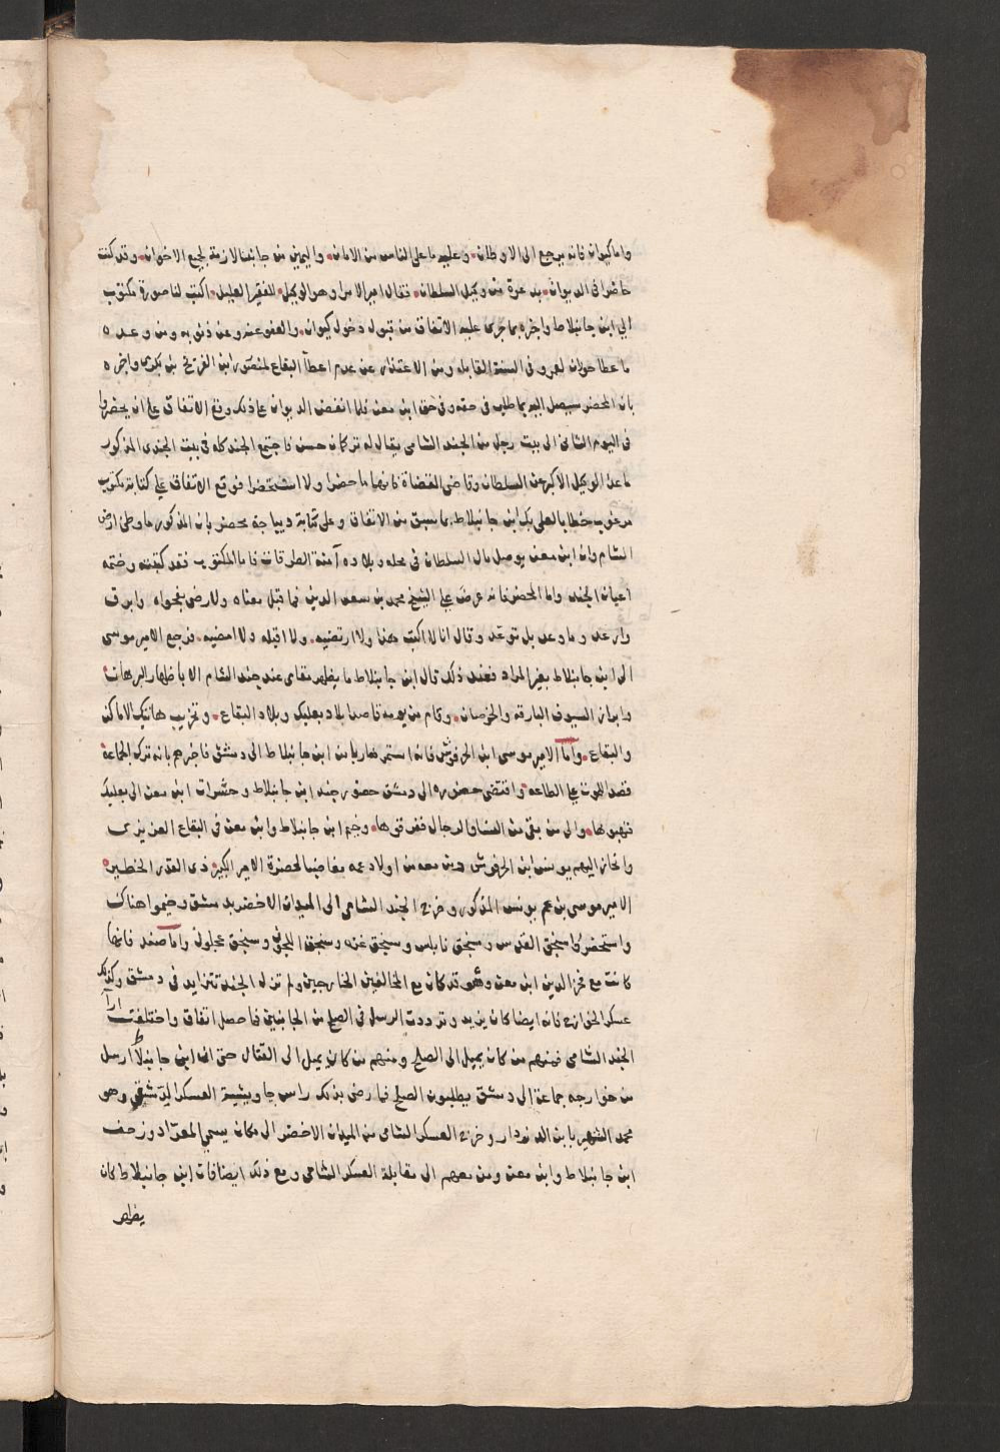 واما كيوان فانه يرجع الى الاوطان وعليه ما على الناس من الامان واليمين من جانبنا لازمة لجميع الاخوان وقد كنت
حاضرا فى الديوان بدعوة من وكيل السلطان فقال امير الامرا وهو الوكيل للفقير العليل اكتب لنا صورة مكتوب
الى ابن جانبلاط واخبره بما جرى عليه الاتفاق من قبول دخول كيوان والعفو عنه وعن ذنوبه ومن وعد
ما عطا حوران لعمرو فى السنة القابلة ومن الاعتذار عن عدم اعطآ البقاع لمنصور ابن الفريخ بن واخبره
بان المحضر سيصل اليه بما طلب فى حقه وفى حق ابن معن فلما انفض الديوان على ذلك وقع الاتفاق على ان يحضروا
فى اليوم الثانى الى بيت رجل من الجند الشامى يقال له تركمان حسن فاجتمع الجند كله فى بيت الجندى المذكور
ما عدا الوكيل الاكبر عن السلطان وقاضى القضاة فانهما ما حضرا ولا استحضرا فوقع الاتفاق على كتابة مكتوب
مرغوب خطابا لعلى بك ابن جانبلاط بما سبق من الاتفاق وعلى كتابة ديباجة محضر بان المذكور ما وطئ ارض
الشام وان ابن معن يوصل مال السلطان فى محله وبلاده آمنة الطرقات فاما المكتوب فقد كتبته وختمه
اعيان الجند واما المحضر فانه عرض على الشيخ محمد بن سعد الدين فما قبل معناه ولا رضى بفحواه وابرق
وارعد وما وعد بل توعد وقال انا لا اكتب هذا ولا ارتضيه ولا اقبله ولا امضيه فرجع الامير موسى
الى ابن جانبلاط بغير المراد فعند ذلك قال ابن جانبلاط ما يظهر مقامى عند جند الشام الا باظهار البرهان
وابراز السيوف البارقه والخرصان وقام من يومه قاصدا بلاد بعلبك وبلاد البقاع وتخريب هاتيك الاماكن
والبقاع واما الامير موسى ابن الحرفوش فانه استمر هاربا من ابن جانبلاط الى دمشق فاخبرهم بانه ترك الجماعة
قصد الموت على الطاعه واقتضى حضوره الى دمشق حضور جند ابن جانبلاط وحشرات ابن معن الى بعلبك
فنهبوها والى من بقى من النسا والرجال ففرقوها وخيم ابن جانبلاط وابن معن فى البقاع العزيزى
وانحاز اليهم يونس ابن الحرفوش ومن معه من اولاد عمه مغاضبا لحضرة الامير الكبير ذى القدر الخطير
الامير موسى بن عم يونس المذكور وخرج الجند الشامى الى الميدان الاخضر بدمشق وخيموا هناك
واستحضروا سنجق القدس وسنجق نابلس وسنجق غزه وسنجق اللجون وسنجق عجلون واما صفد فانها
كانت مع فخر الدين ابن معن وهو قد كان مع المخالفين الخارجين ولم تزل الجند تتزايد فى دمشق وكذلك
عسكر الخوارج فانه ايضا كان يزيد وترددت الرسل فى الصلح من الجانبين فما حصل اتفاق واختلفت ارآ
الجند الشامى فمنهم من كان يميل الى الصلح ومنهم من كان يميل الى القتال حتى ان ابن جانبلاط ارسل
من خوارجه جماعة الى دمشق يطلبون الصلح فما رضى بذلك راس جاويشية العسكر الدمشقى وهو
محمد الشهير بابن الدزدار وخرج العسكر الشامى من الميدان الاخضر الى مكان يسمى المعراد وزحف
ابن جانبلاط وابن معن ومن معهم الى مقابلة العسكر الشامى ومع ذلك ايضا فان ابن جانبلاط كان
يظهر